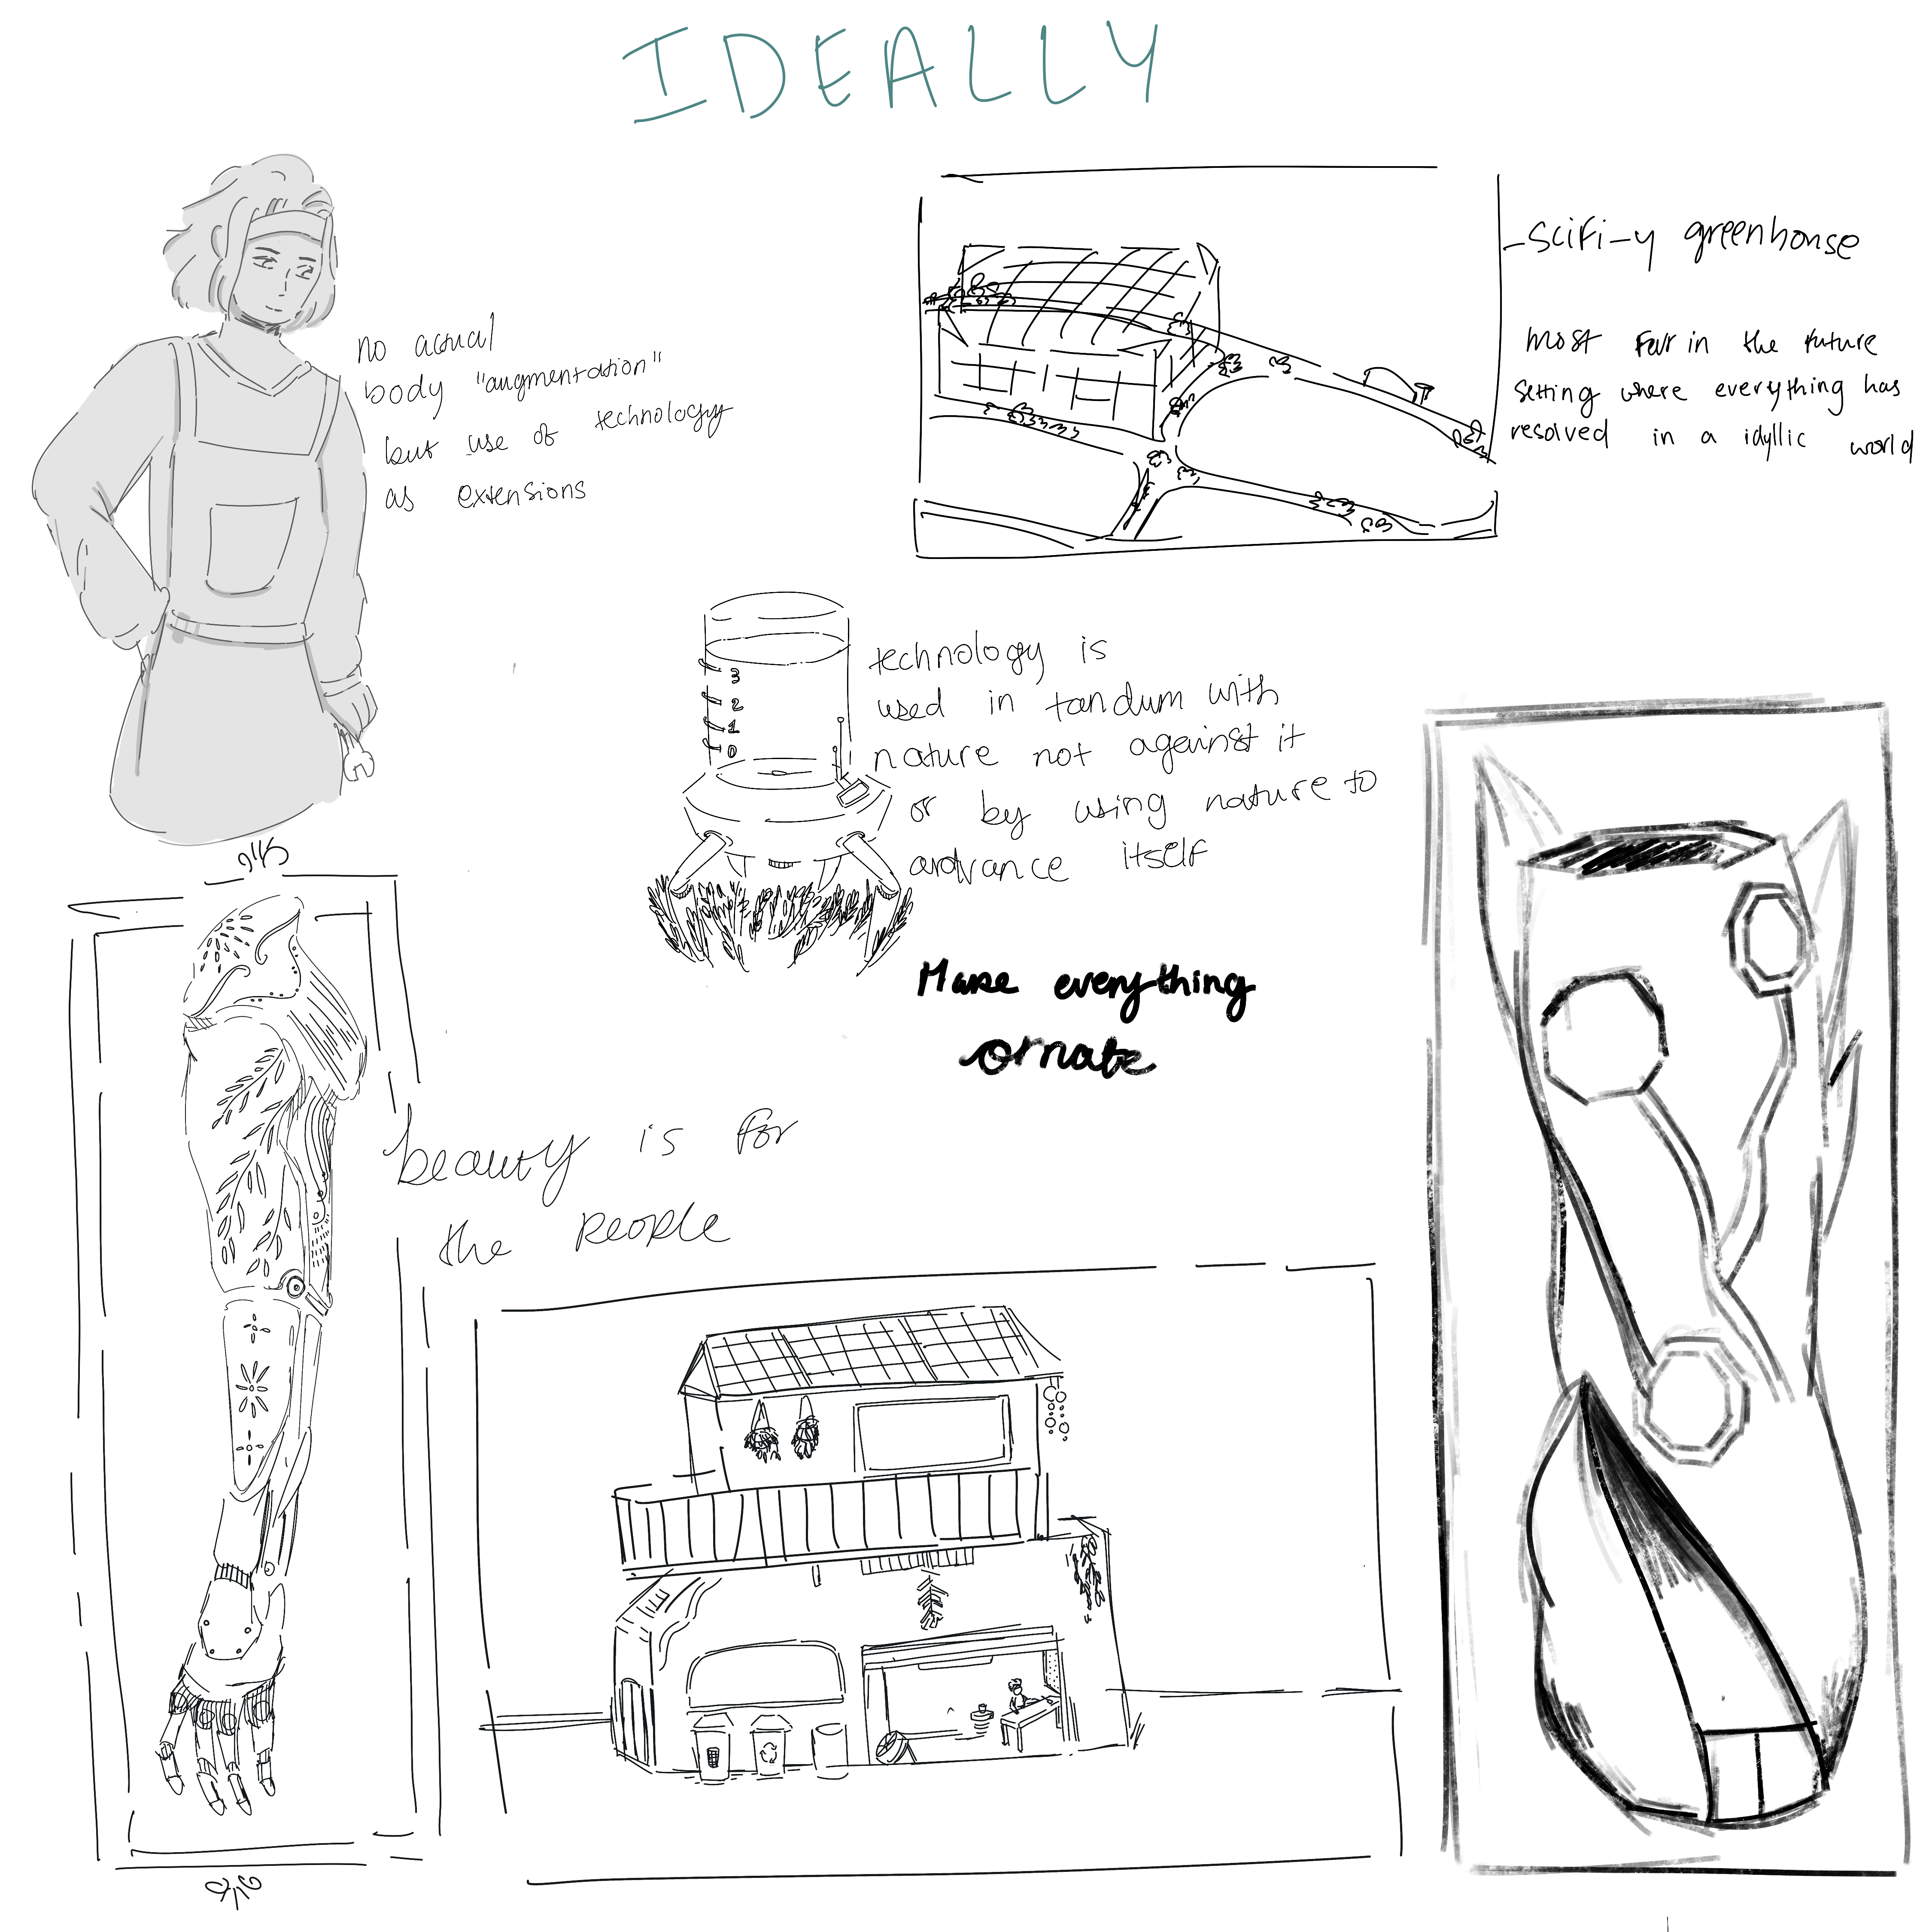 IDEALLY
no actual
body "augmentation"
but use of technology
as extensions
-scifi-y greenhouse
most far in the future
setting where everything has
resolved in a idyllic world
3
2
1
0
technology is
used in tandum with
nature not against it
or by using nature to
advance itself
Make everything
ornate
beauty is for
the people